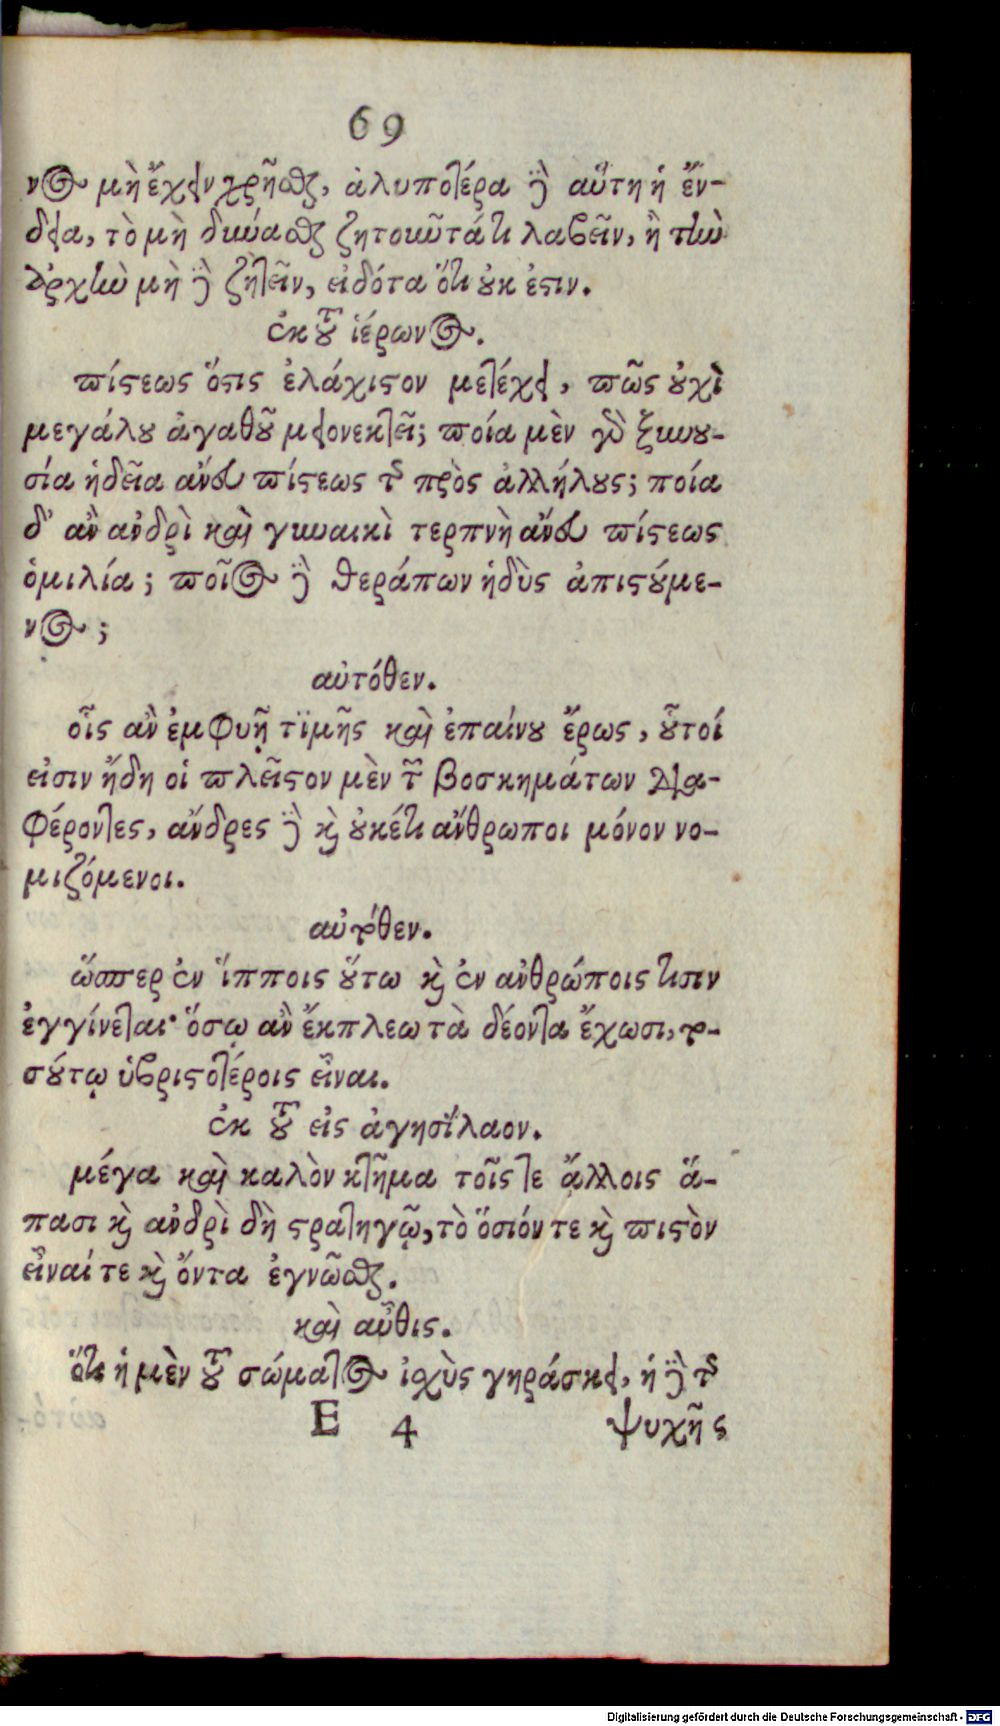 69
νος μὴ ἔχειν χρῆσθαι, ἀλυποτέρα δὲ αὕτη ἡ ἔν-
δεια, τὸ μὴ δύνασθαι ζητοῦντά τι λαβεῖν, ἢ τὴν
ἀρχὴν μὴ δὲ ζητεῖν, εἰδότα ὅτι οὐκ ἔστιν.
ἐκ τοῦ ἱέρωνος.
πίστεως ὅστις ἐλάχιστον μετέχει, πῶς οὐχὶ
μεγάλου ἀγαθοῦ μειονεκτεῖ; ποία μὲν γὰρ ξυνου-
σία ἡδεῖα ἄνευ πίστεως τῆς πρὸς ἀλλήλους; ποία
δ' ἂν ἀνδρὶ καὶ γυναικὶ τερπνὴ ἄνευ πίστεως
ὁμιλία; ποῖος δὲ θεράπων ἡδὺς ἀπιστούμε-
νος;
αὐτόθεν.
οἷς ἂν ἐμφυῇ τϊμῆς καὶ ἐπαίνου ἔρως, οὗτοί
εἰσιν ἤδη οἱ πλεῖστον μὲν τῶν βοσκημάτων δια-
φέροντες, ἄνδρες δὲ καὶ οὐκέτι ἄνθρωποι μόνον νο-
μιζόμενοι.
αὐτόθεν.
ὥσπερ ἐν ἵπποις οὕτω καὶ ἐν ἀνθρώποις τισιν
ἐγγίνεται· ὅσῳ ἂν ἔκπλεω τὰ δέοντα ἔχωσι, το-
σούτῳ ὑβριστοτέροις εἶναι.
ἐκ τοῦ εἰς ἀγησίλαον.
μέγα καὶ καλὸν κτῆμα τοῖς τε ἄλλοις ἅ-
πασι καὶ ἀνδρὶ δὴ στρατηγῷ, τὸ ὅσιόν τε καὶ πιστὸν
εἶναί τε καὶ ὄντα ἐγνῶσθαι.
καὶ αὖθις.
ὅτι ἡ μὲν τοῦ σώματος ἰσχὺς γηράσκει, ἡ δὲ τῆς
E 4 ψυχῆς
Digitalisierung gefördert durch die Deutsche Forschungsgemeinschaft - DFG